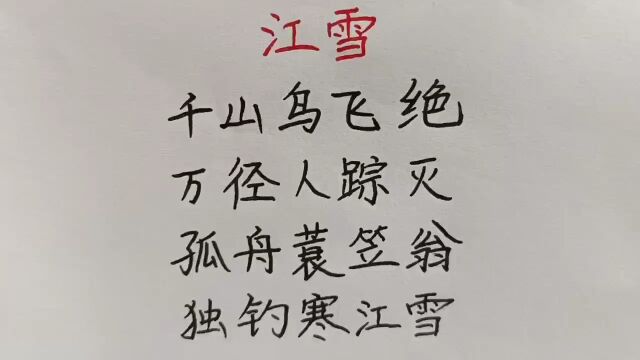 江雪
千山鸟飞绝
万径人踪灭
孤舟蓑笠翁
独钓寒江雪